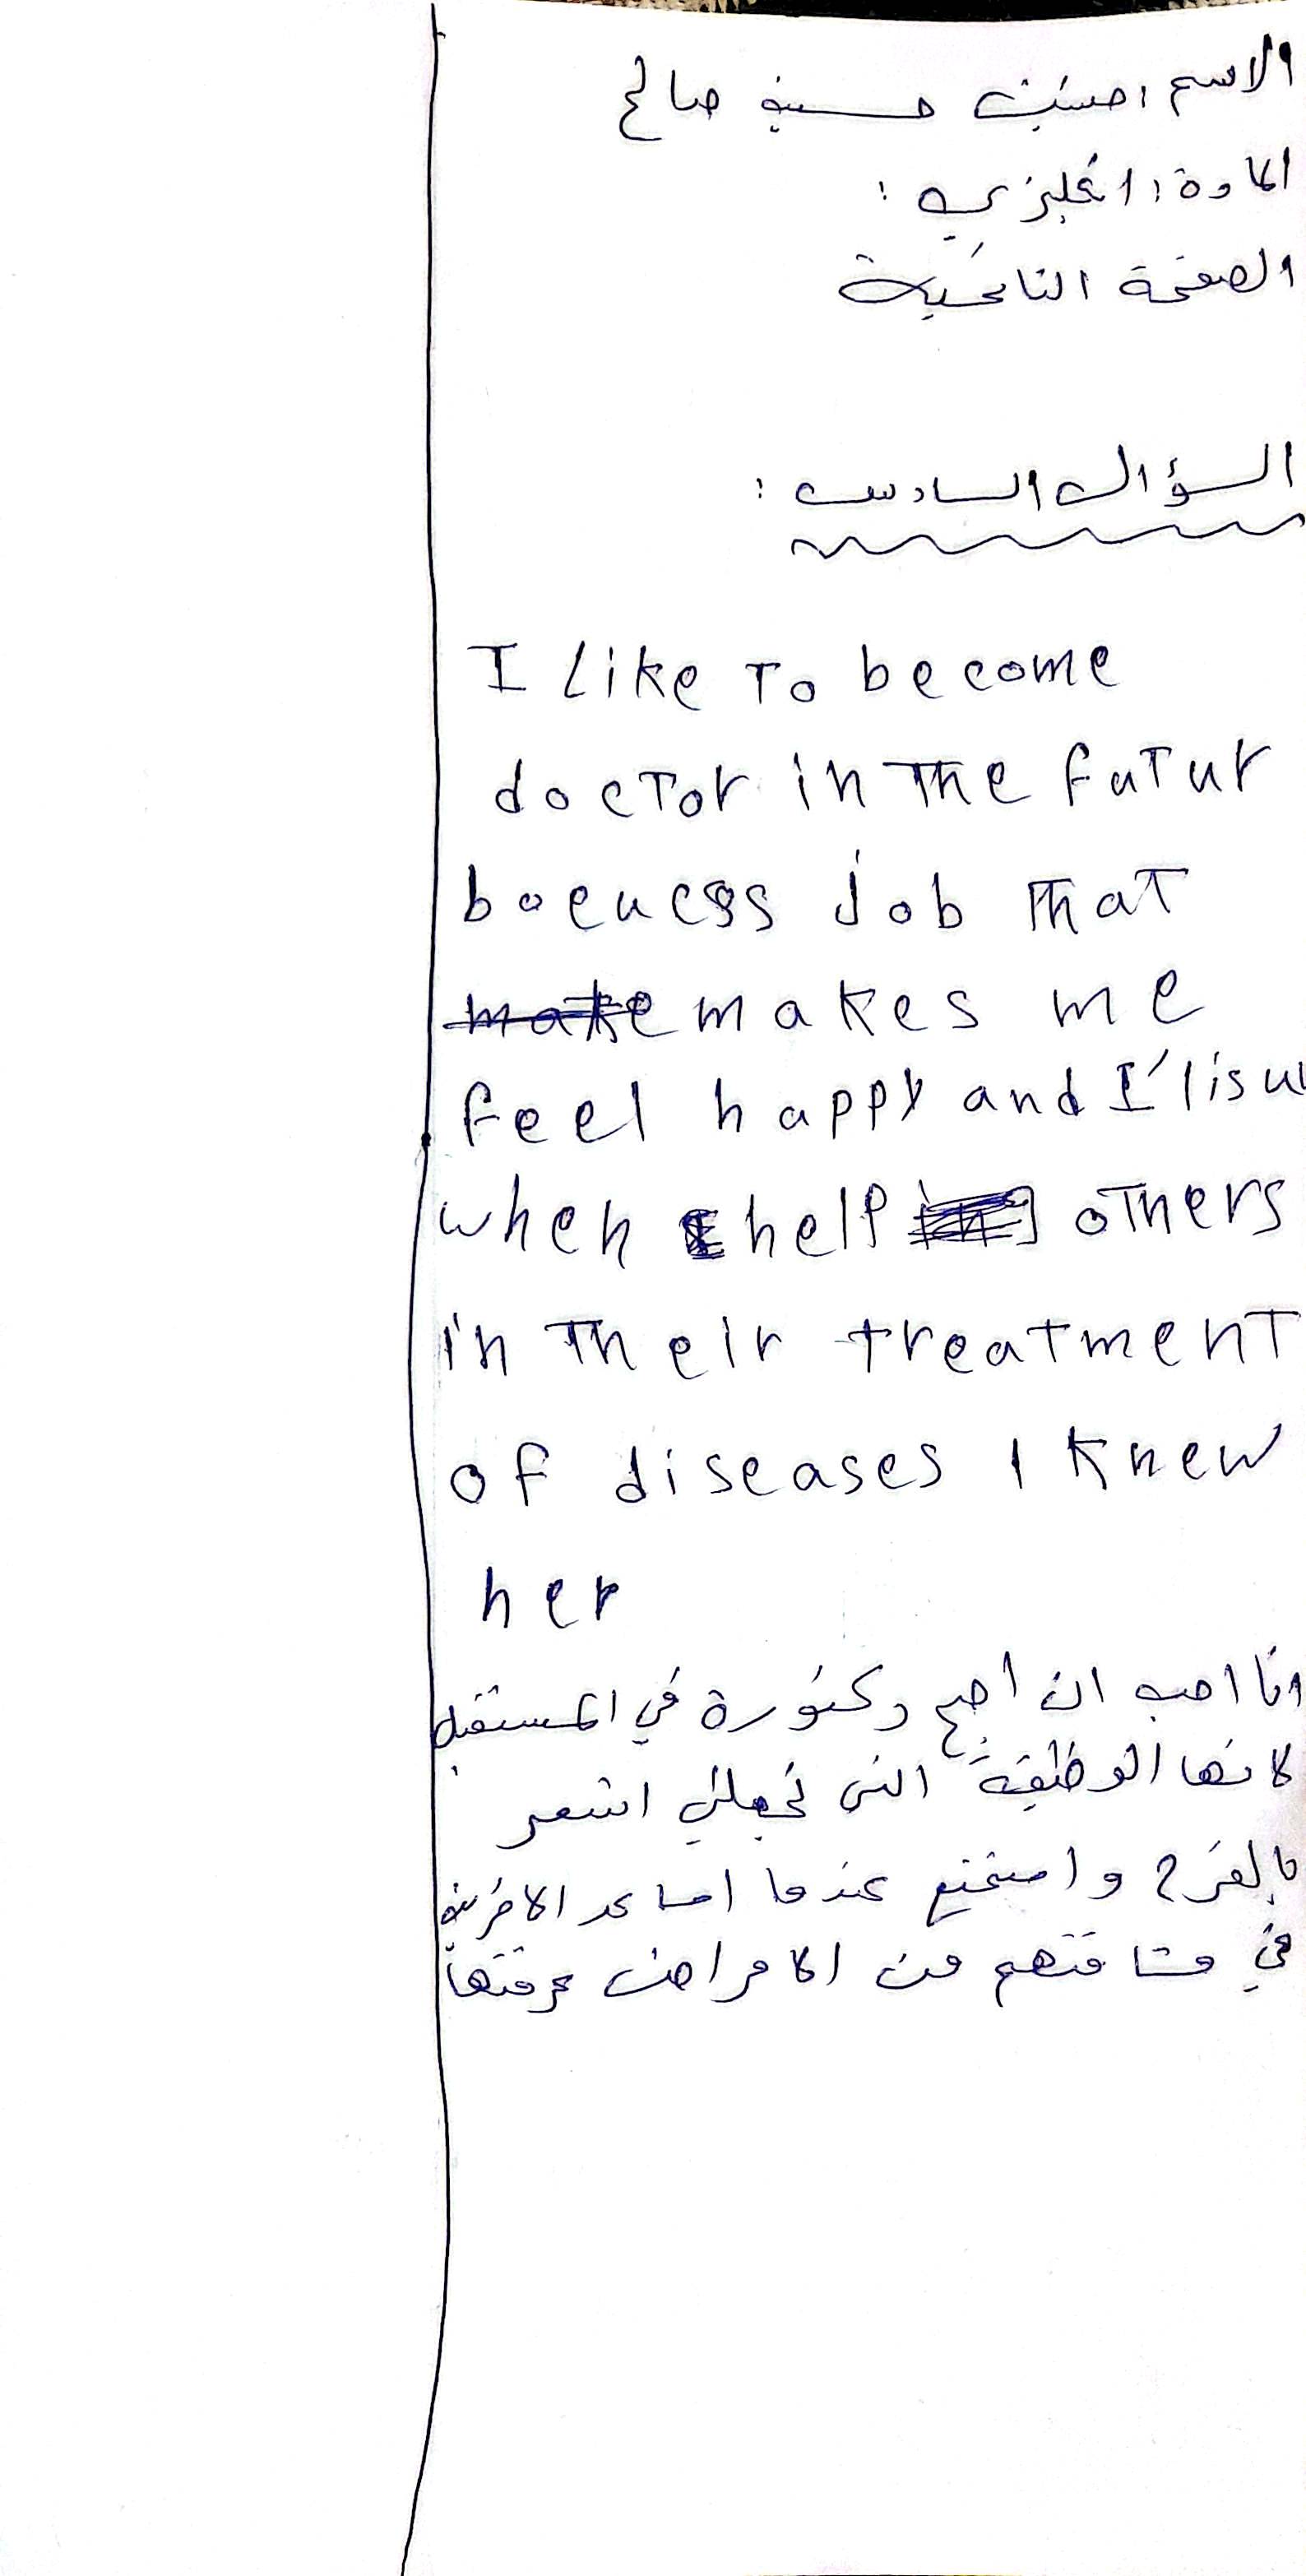 الاسم: حسين صالح
المادة: انجليزي:
الصفحة الثانية
السؤال السادس:
I like To become
docTor in The fuTur
boeucss job That
make makes me
feel happy and I'lisu
when I help ing oThers
in Their treatmenT
of diseases I knew
her
انا احب ان أصبح دكتورة في المستقبل
لانها الوظيفة التي تجعلني اشعر
بالفرح و استمتع عندما اساعد الاخرين
في من الامراض عرفتها